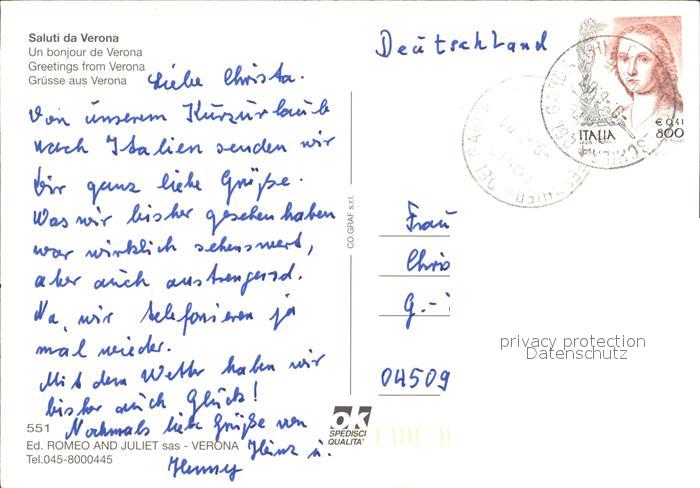 Saluti da Verona
Un bonjour de Verona
Greetings from Verona
Grüsse aus Verona
Liebe Christa.
Von unserem Kurzurlaub
nach Italien senden wir
Dir ganz liebe Grüße.
Was wir bisher gesehen haben
war wirklich sehenswert,
aber auch anstrengend.
Na, wir telefonieren ja
mal wieder.
Mit dem Wetter haben wir
bisher auch Glück!
Nochmals liebe Grüße von
Heinz u.
Henny
551
Ed. ROMEO AND JULIET sas - VERONA
Tel.045-8000445
CO.GRAF s.r.l.
OK
SPEDISCI
QUALITA'
Deutschland
ITALIA
€ 0,41
800
Frau
Chris
G.-
04509
privacy protection
Datenschutz